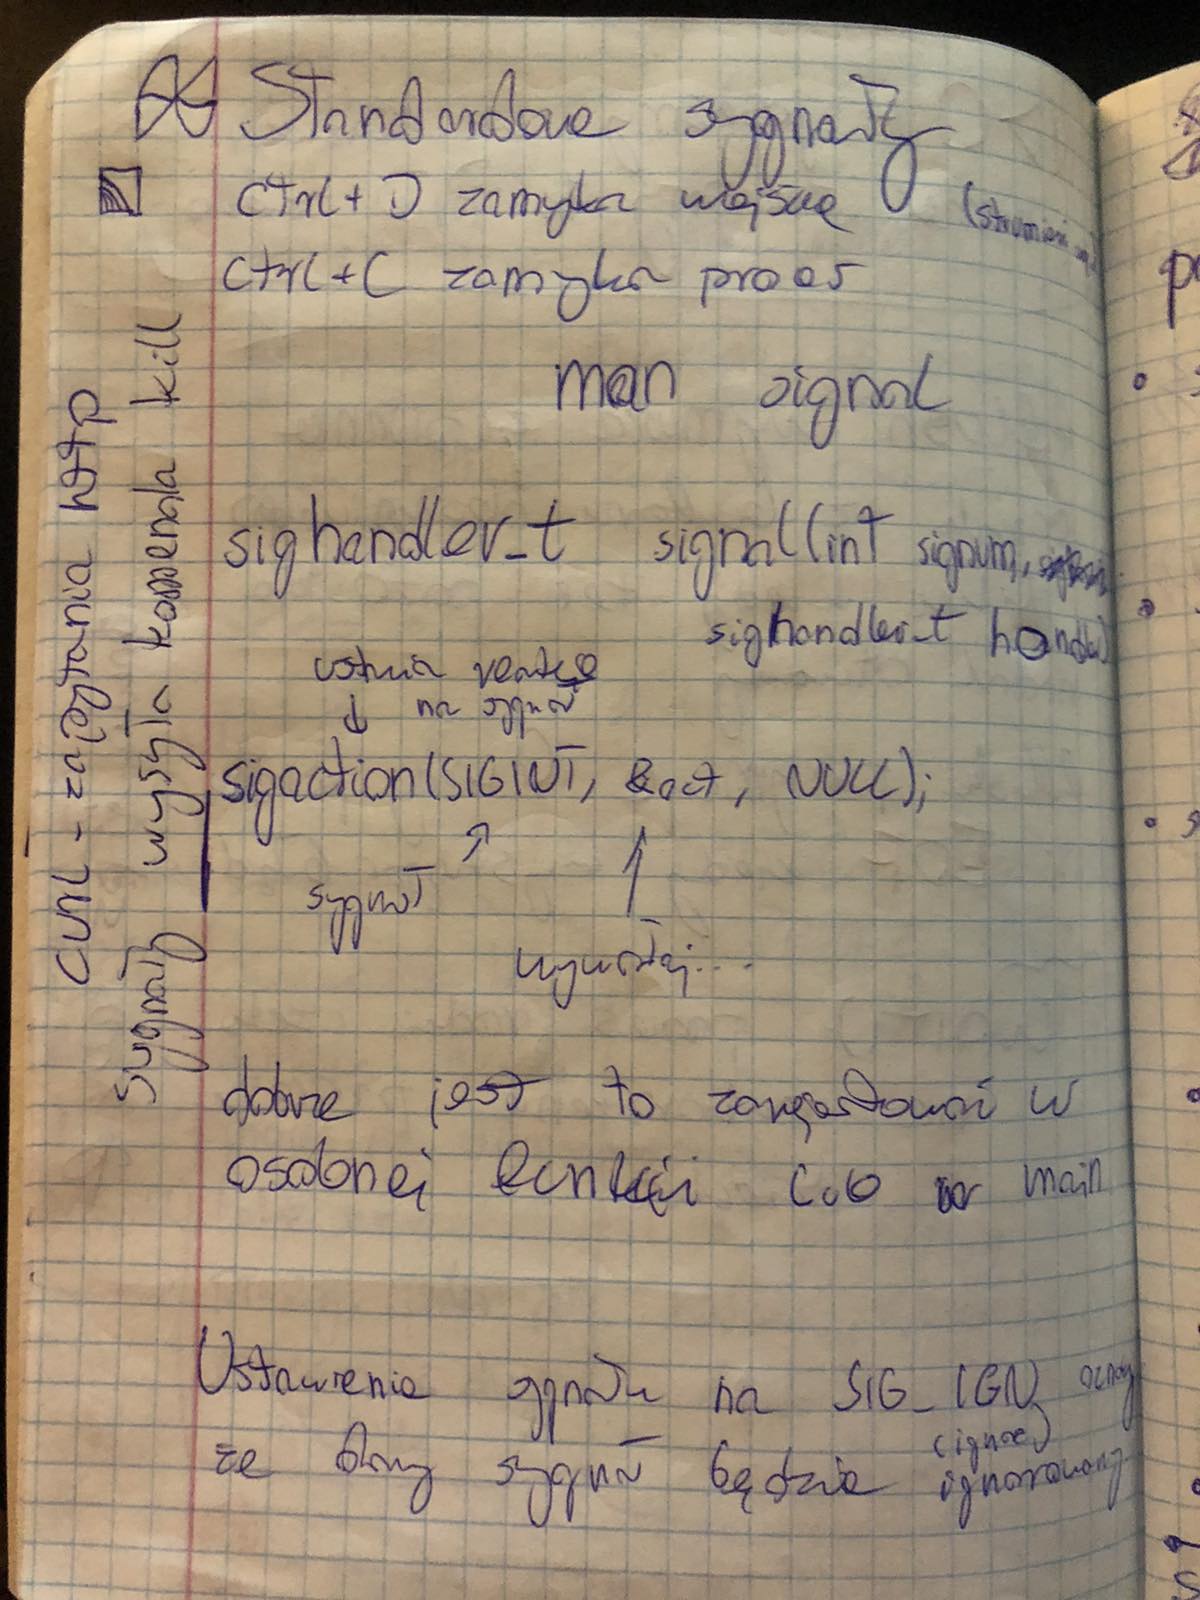 Standardowe sygnały
Ctrl+D zamyka wejście (strumień
Ctrl+C zamyka proces
man signal
sighandler_t signal(int signum,
sighandler_t handler)
ustawia reakcję
na sygnał
sigaction(SIGINT, &act, NULL);
sygnał
wywołaj...
dobrze jest to zawrzeć w
osobnej funkcji w main
Ustawienie sygnału na SIG_IGN
(ignore)
że dany sygnał będzie ignorowany
curl - zapytania http
sygnały wysyła komenda kill